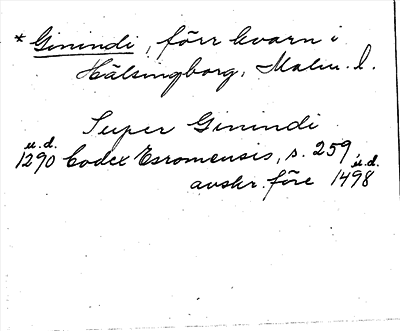 * Ginindi, förr kvarn i
Hälsingborg, Malm. l.
Super Ginindi
u.d.
1290 Codex Esromensis, s. 259,
avskr. före 1498 u.d.